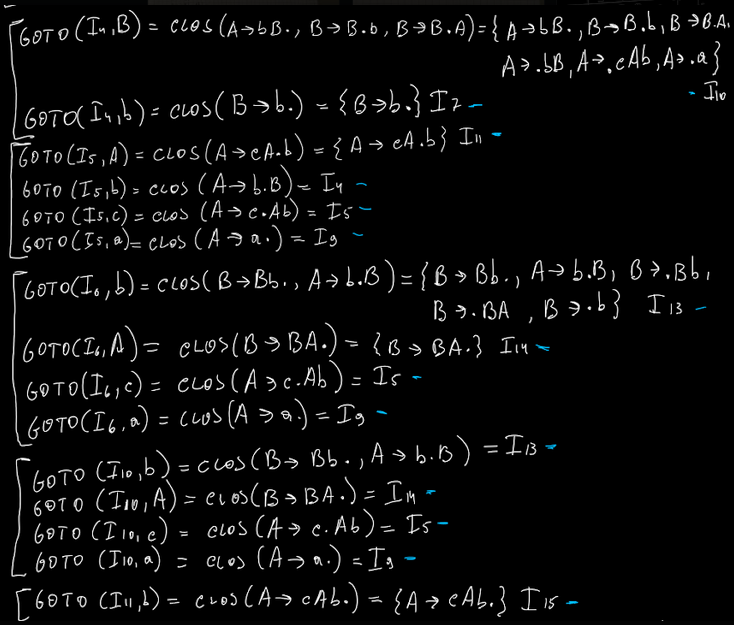 GOTO(I4,B) = CLOS(A→bB., B→B.b, B→B.A) = { A→bB., B→B.b, B→B.A,
A→.bB, A→.cAb, A→.a}
I10
GOTO(I4,b) = CLOS(B→b.) = {B→b.} I7
GOTO(I5,A) = CLOS(A→cA.b) = { A→cA.b} I11
GOTO(I5,b) = CLOS(A→b.B) = I4
GOTO(I5,c) = CLOS(A→c.Ab) = I5
GOTO(I5,a) = CLOS(A→a.) = I9
GOTO(I6,b) = CLOS(B→Bb., A→b.B) = { B→Bb., A→b.B, B→.Bb,
B→.BA , B→.b} I13
GOTO(I6,A) = CLOS(B→BA.) = {B→BA.} I14
GOTO(I6,c) = CLOS(A→c.Ab) = I5
GOTO(I6,a) = CLOS(A→a.) = I9
GOTO (I10,b) = CLOS(B→Bb., A→b.B) = I13
GOTO (I10,A) = CLOS(B→BA.) = I14
GOTO (I10,c) = CLOS(A→c.Ab) = I5
GOTO (I10,a) = CLOS (A→a.) = I9
GOTO (I11,b) = CLOS(A→cAb.) = {A→cAb.} I15